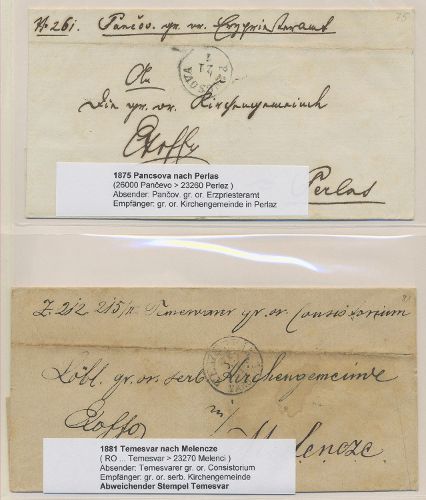 No 261. Pančov. gr. or. Erzpriesteramt
75
PANCSOVA
An
Die gr. or. Kirchengemeinde
Exoffo
Perlas
1875 Pancsova nach Perlas
(26000 Pančevo > 23260 Perlez )
Absender: Pančov. gr. or. Erzpriesteramt
Empfänger: gr. or. Kirchengemeinde in Perlaz
Z. 212 215/n Temesvarer gr. or. Consistorium
81
Löbl. gr. or. serb. Kirchengemeinde
Exoffo in
Melencze.
1881 Temesvar nach Melencze
( RO ... Temesvar > 23270 Melenci )
Absender: Temesvarer gr. or. Consistorium
Empfänger: gr. or. serb. Kirchengemeinde
Abweichender Stempel Temesvar